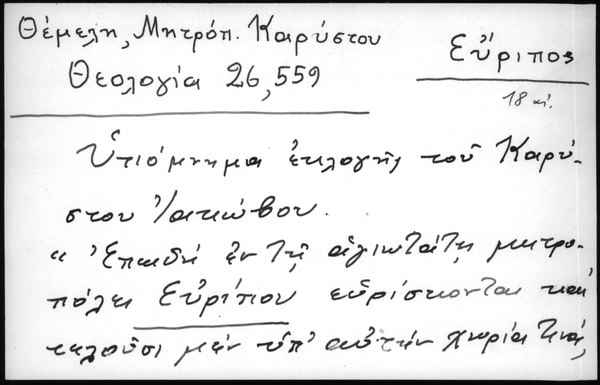 Θέμελη, Μητρόπ. Καρύστου
Θεολογία 26,559
Εὔριπος
18 αἰ.
Ὑπόμνημα ἐκλογῆς τοῦ Καρύ-
στου Ἰακώβου.
“ Ἐπειδὴ ἐν τῇ ἁγιωτάτῃ μητρο-
πόλει Εὐρίπου εὑρίσκονται καὶ
τελοῦσι μὲν ὑπ’ αὐτὴν χωρία τινά,